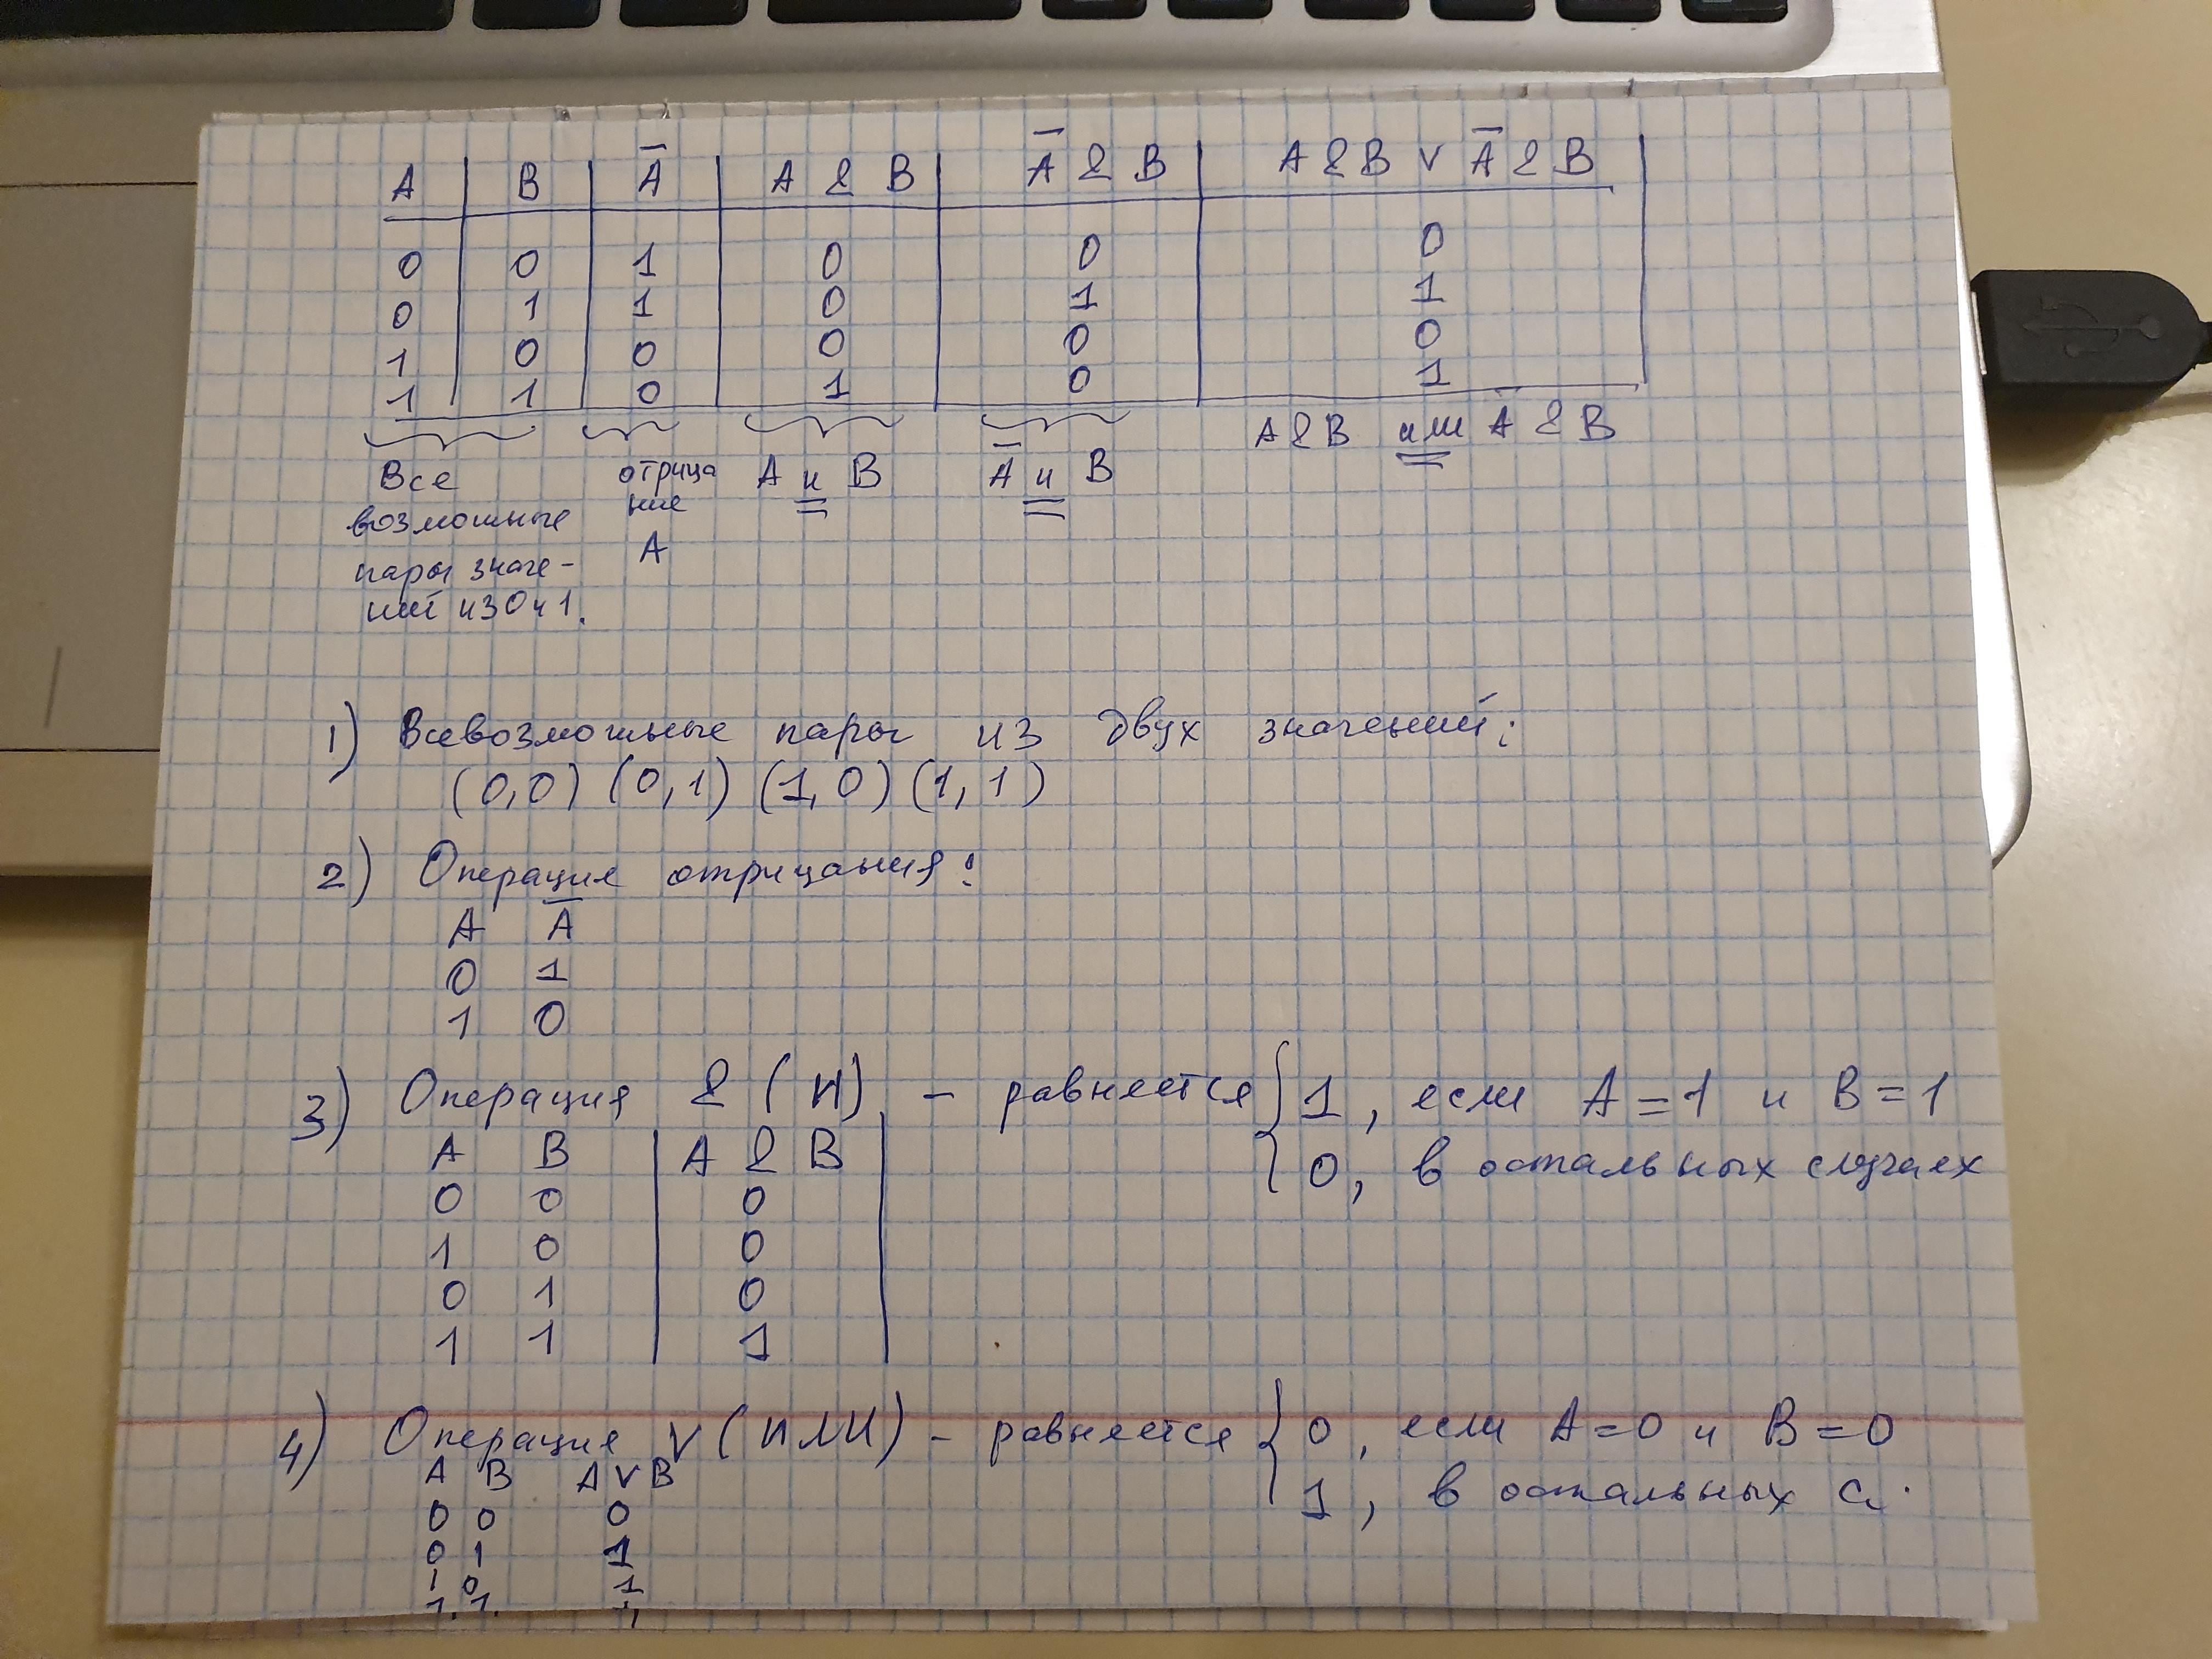 A | B | Ā | A & B | Ā & B | A & B ∨ Ā & B
0 | 0 | 1 | 0 | 0 | 0
0 | 1 | 1 | 0 | 1 | 1
1 | 0 | 0 | 0 | 0 | 0
1 | 1 | 0 | 1 | 0 | 1
Все
возможные
пары значе-
ний из 0 и 1.
отрица
ние
A
A и B
Ā и B
A & B или Ā & B
1) Всевозможные пары из двух значений:
(0,0) (0,1) (1,0) (1,1)
2) Операция отрицания:
A Ā
0 1
1 0
3) Операция & (И) – равняется { 1, если A=1 и B=1
0, в остальных случаях
A B | A & B |
0 0 | 0
1 0 | 0
0 1 | 0
1 1 | 1
4) Операция ∨ (ИЛИ) – равняется { 0, если A=0 и B=0
1, в остальных с.
A B A ∨ B
0 0 0
0 1 1
1 0 1
1 1 1